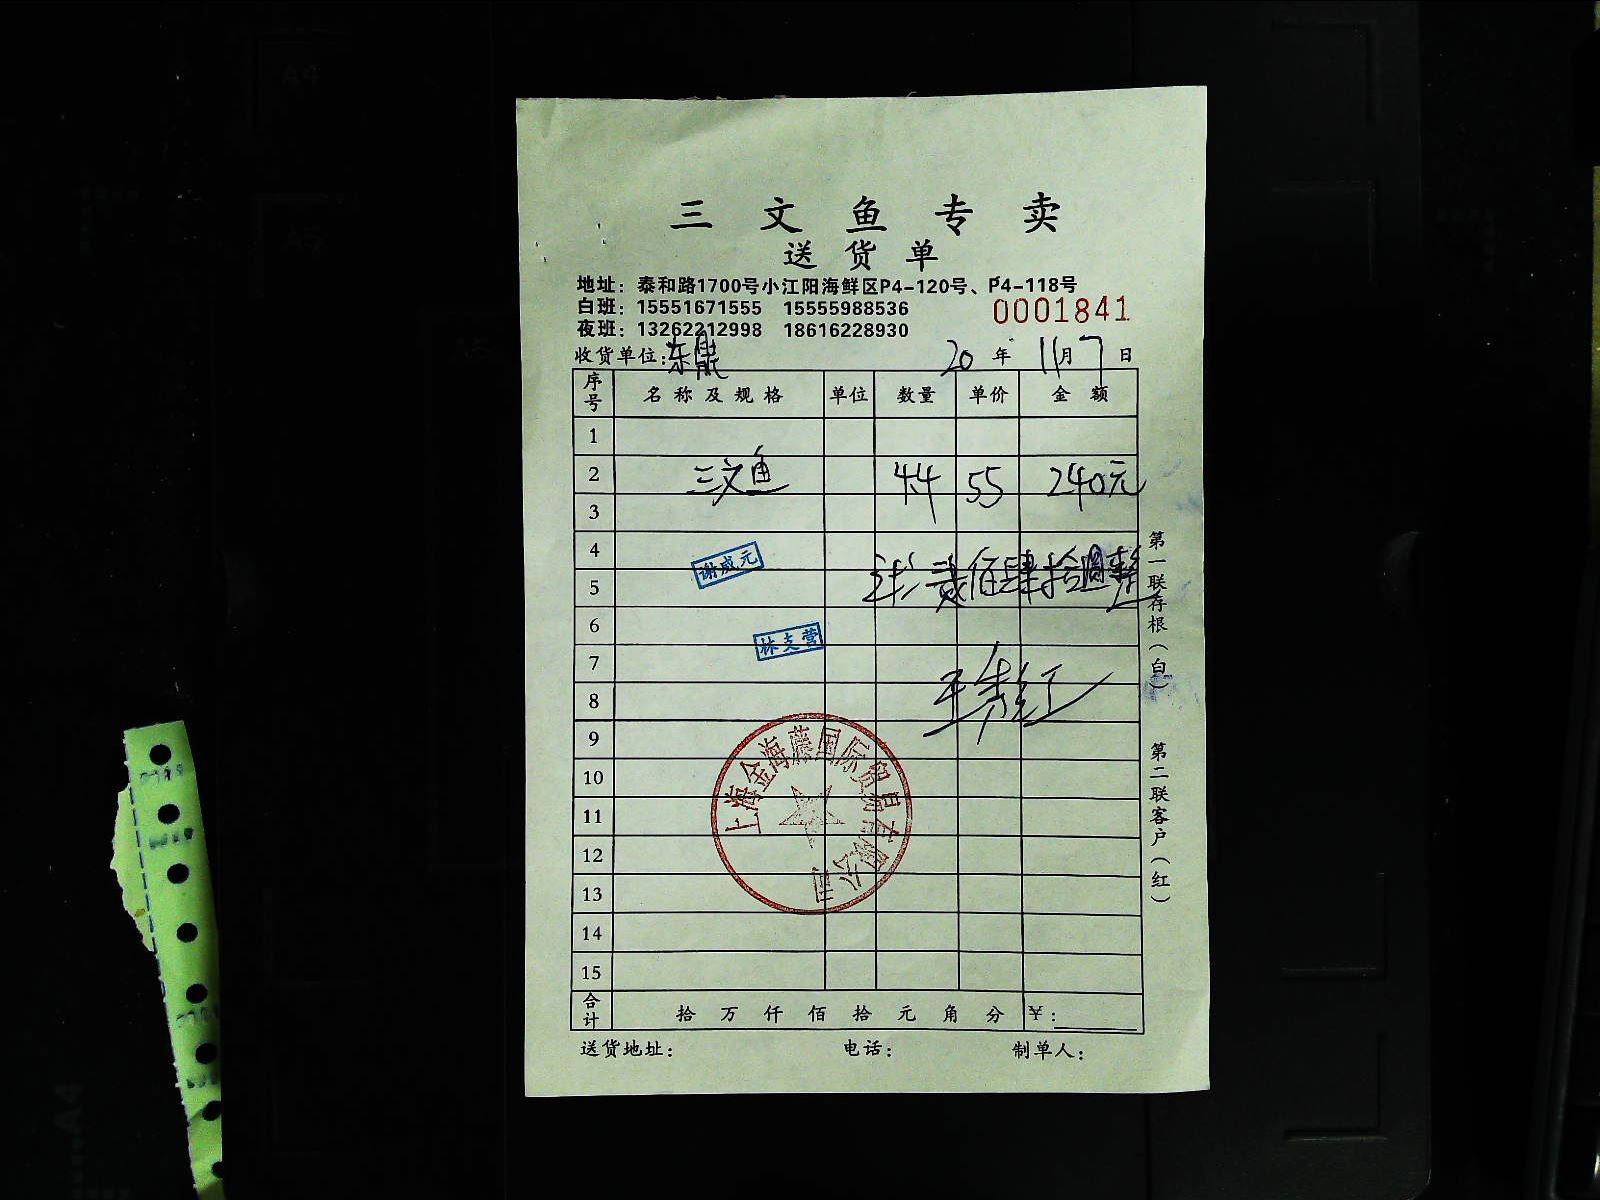 三文鱼专卖
送货单
地址：泰和路1700号小江阳海鲜区P4-120号、P4-118号
白班：15551671555 15555988536
0001841
夜班：13262212998 18616228930
收货单位：东 20年11月7日
序号 名称及规格 单位 数量 单价 金额
1
2 三文鱼 4.4 55 240元
3
4
谢威元
5 贰佰肆拾圆整
6
林支营
7
8
9
10
11
12
13
14
15
上海金海藤国际贸易有限公司
合计 拾万仟佰拾元角分 ￥：
送货地址： 电话： 制单人：
第一联存根（白）
第二联客户（红）